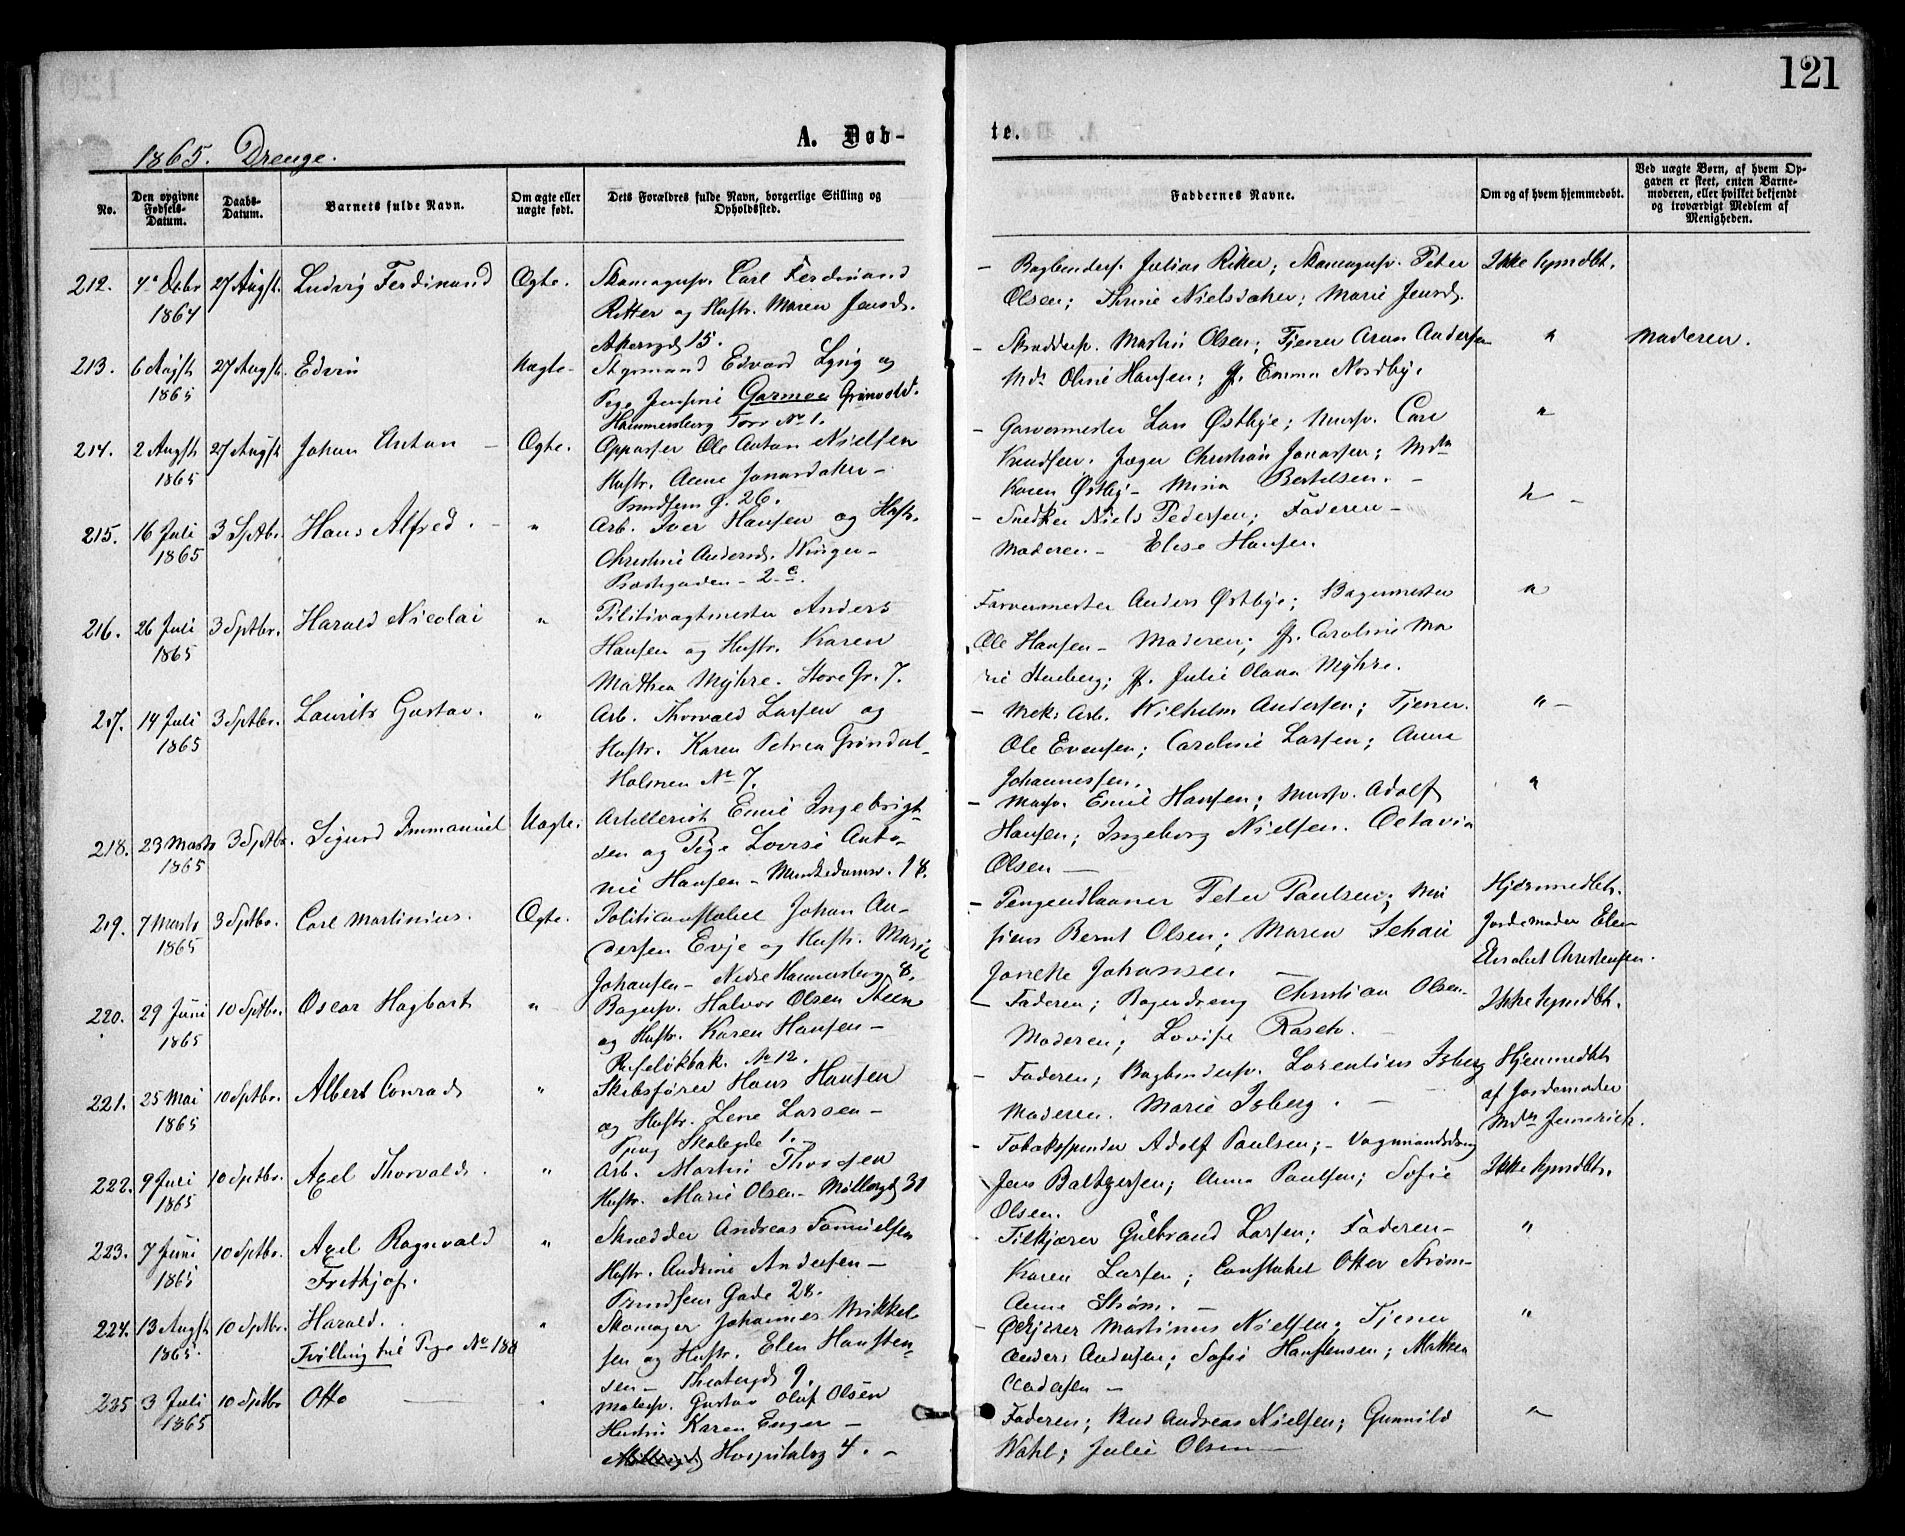 121
A. Døb-
te.
1865. Drenge.
No.
Den opgivne Fødsels-Datum.
Daabs-Datum.
Barnets fulde Navn.
Om ægte eller uægte født.
Dets Forældres fulde Navn, borgerlige Stilling og Opholdssted.
Faddernes Navne.
Om og af hvem hjemmedøbt.
Ved uægte Børn, af hvem Opgaven er skeet, enten Barnemoderen, eller hvilket bekjendt og troværdigt Medlem af Menigheden.
212. 1864 27 Augst. Ludvig Ferdinand Ægte. Skomagersv. Carl Ferdinand
Ritter og Hustr. Maren Jensd.
Akersgd 15.
Bogbindersv. Julius Riker; Skomagersv. Peter
Olsen; Thrine Nielsdatter; Marie Jensd.
Ikke hjmdbt.
213. 6 Augst 1865 27 Augst. Edvin Uægte Styrmand Edvard Lyng og
Pige Jensine Garmoe Grinvold.
Hammersborg Torv No 1.
Skræddersv. Martin Olsen; Tjener Aron Andersen
Md. Oline Hansen; Jf. Emma Nordby.
" Moderen.
214. 2 Augst 1865 27 Augst Johan Anton Ægte. Oppasser Ole Anton Nielsen
Hustr. Anne Jonasdatter
26.
Garvermester Lars Østbye; Mursv. Carl
Knudsen. Jæger Christian Jonassen; Mdm
Karen Østby - Mina Bertelsen.
"
215. 16 Juli 1865 3 Sptbr. Hans Alfred. " Arb. Iver Hansen og Hustr.
Christine Andersd. Winger
2 c.
Snedker Niels Pedersen; Faderen
Moderen - Elise Hansen.
"
216. 26 Juli 1865 3 Sptbr. Harald Nicolai " Politivagtmester Anders
Hansen og Hustr. Karen
Mathea Myhre. Store Gr. 7.
Farvermester Anders Østbye; Bagermester
Ole Hansen - Moderen; Jf. Caroline Ma
rie; Jf. Julie Olava Myhre.
"
217. 14 Juli 1865 3 Sptbr. Laurits Gustav. " Arb. Thorvald Larsen og
Hustr. Karen Petrea Grøndal
Holmen No 7.
Mek. Arb. Wilhelm Andersen; Tjener.
Ole Evensen; Caroline Larsen; Anne
Johannessen.
"
218. 23 Marts 1865 3 Sptbr. Sigurd Immanuel Uægte. Artillerist Emil Ingebrigt-
sen og Pige Lovise Anto-
nie Hansen - Munkedamsv. 18.
Mursv. Emil Hansen; Mursv. Adolf
Hansen; Ingeborg Nielsen. Octavia
Olsen
"
219. 7 Marts 1865 3 Sptbr. Carl Martinius. Ægte. Politiconstabel Johan An-
dersen Evje og Hustr. Marie
Johansen - Nedre Hammersborg 8.
Pengeudlaaner Peter Paulsen; Mu
sikus Bernt Olsen; Maren
Jonette Johansen
Hjemmedbt.
Jordemoder Elen
Elisabet Christensen.
220. 29 Juni 1865 10 Sptbr. Oscar Hagbart " Bagersv. Halvor Olsen Steen
og Hustr. Karen Hansen
Ruseløkbak. No 12.
Faderen; Bagerdreng Christian Olsen.
Moderen; Lovise Rasch.
Ikke hjmdbt.
221. 25 Mai 1865 10 Sptbr. Albert Conrad " Skibsfører Hans Hansen
og Hustr. Lene Larsen
Skolegde 1.
Faderen; Bogbindersv. Lorentius Isberg
Moderen. Marie Isberg.
Hjemmedbt
af Jordemoder
222. 9 Juli 1865 10 Sptbr. Axel Thorvald. " Arb. Martin Thorsen
Hustr. Marie Olsen - Møllergd 31
Tobaksspinder Adolf Paulsen; - Vognmandsdreng
Jens Baltzersen; Anna Paulsen; Sofie
Olsen.
Ikke hjmdbt.
223. 7 Juni 1865 10 Sptbr. Axel Ragnvald " Skrædder Andreas Samuelsen
Frithjof. Hustr. Andrine Andersen
Gade 28.
Gulbrand Larsen; Faderen
Karen Larsen; Constabel Otter Strøm
Anne Strøm.
"
224. 13 Augst 1865 10 Sptbr. Harald. " Skomager Johannes Mikkel-
Tvilling til Pige No 188 sen og Hustr. Elen Hansten-
sen - Theatergd 9.
Martinus Nielsen; Tjener
Anders Andersen; Sofie Hanstensen; Mathea
"
225 3 Juli 1865 10 Sptbr Otto " Malersv. Gustav Oluf Olsen
Hustru Karen Enger
Hospitalsg 4.
Faderen; Bud Andreas Nielsen; Gunnild
Wahl; Julie Olsen
"